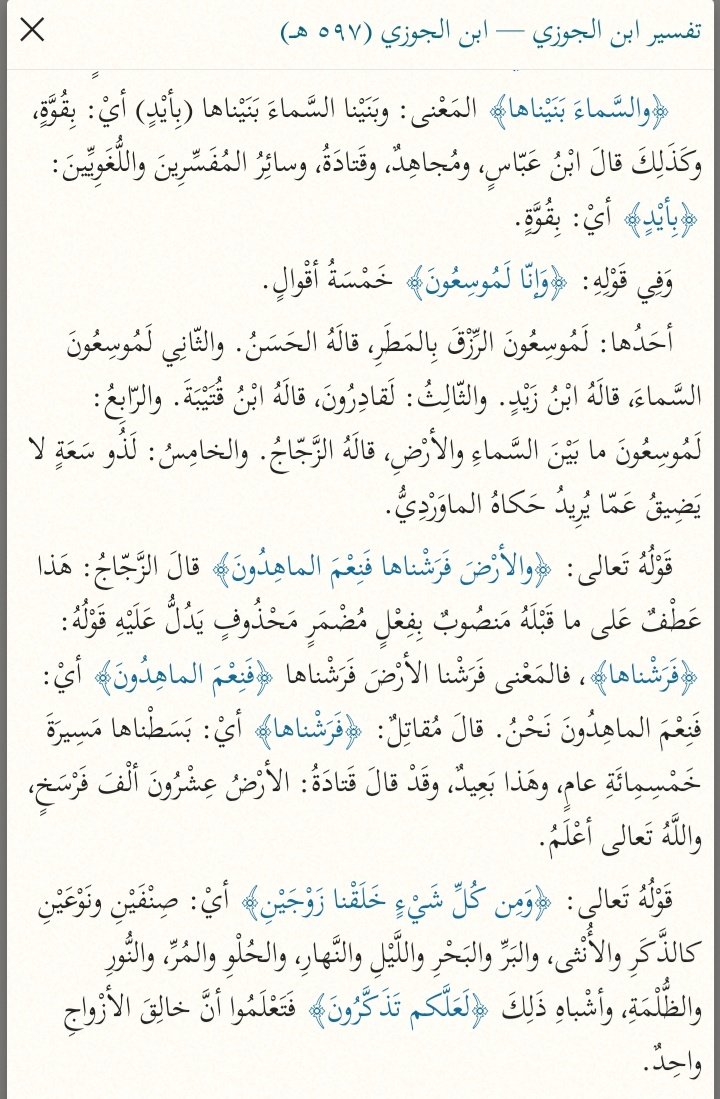 تفسير ابن الجوزي — ابن الجوزي (٥٩٧ هـ)
﴿والسَّماءَ بَنَيْناها﴾ المَعْنى: وبَنَيْنا السَّماءَ بَنَيْناها (بِأيْدٍ) أيْ: بِقُوَّةٍ،
وكَذَلِكَ قالَ ابْنُ عَبّاسٍ، ومُجاهِدٌ، وقَتادَةُ، وسائِرُ المُفَسِّرِينَ واللُّغَوِيِّينَ:
﴿بِأيْدٍ﴾ أيْ: بِقُوَّةٍ.
وَفِي قَوْلِهِ: ﴿وَإنّا لَمُوسِعُونَ﴾ خَمْسَةُ أقْوالٍ.
أحَدُها: لَمُوسِعُونَ الرِّزْقَ بِالمَطَرِ، قالَهُ الحَسَنُ. والثّانِي لَمُوسِعُونَ
السَّماءَ، قالَهُ ابْنُ زَيْدٍ. والثّالِثُ: لَقادِرُونَ، قالَهُ ابْنُ قُتَيْبَةَ. والرّابِعُ:
لَمُوسِعُونَ ما بَيْنَ السَّماءِ والأرْضِ، قالَهُ الزَّجّاجُ. والخامِسُ: لَذُو سَعَةٍ لا
يَضِيقُ عَمّا يُرِيدُ حَكاهُ الماوَرْدِيُّ.
قَوْلُهُ تَعالى: ﴿والأرْضَ فَرَشْناها فَنِعْمَ الماهِدُونَ﴾ قالَ الزَّجّاجُ: هَذا
عَطْفٌ عَلى ما قَبْلَهُ مَنصُوبٌ بِفِعْلٍ مُضْمَرٍ مَحْذُوفٍ يَدُلُّ عَلَيْهِ قَوْلُهُ:
﴿فَرَشْناها﴾، فالمَعْنى فَرَشْنا الأرْضَ فَرَشْناها ﴿فَنِعْمَ الماهِدُونَ﴾ أيْ:
فَنِعْمَ الماهِدُونَ نَحْنُ. قالَ مُقاتِلٌ: ﴿فَرَشْناها﴾ أيْ: بَسَطْناها مَسِيرَةَ
خَمْسِمِائَةِ عامٍ، وهَذا بَعِيدٌ، وقَدْ قالَ قَتادَةُ: الأرْضُ عِشْرُونَ ألْفَ فَرْسَخٍ،
واللَّهُ تَعالى أعْلَمُ.
قَوْلُهُ تَعالى: ﴿وَمِن كُلِّ شَيْءٍ خَلَقْنا زَوْجَيْنِ﴾ أيْ: صِنْفَيْنِ ونَوْعَيْنِ
كالذَّكَرِ والأُنْثى، والبَرِّ والبَحْرِ واللَّيْلِ والنَّهارِ، والحُلْوِ والمُرِّ، والنُّورِ
والظُّلْمَةِ، وأشْباهِ ذَلِكَ ﴿لَعَلَّكم تَذَكَّرُونَ﴾ فَتَعْلَمُوا أنَّ خالِقَ الأزْواجِ
واحِدٌ.